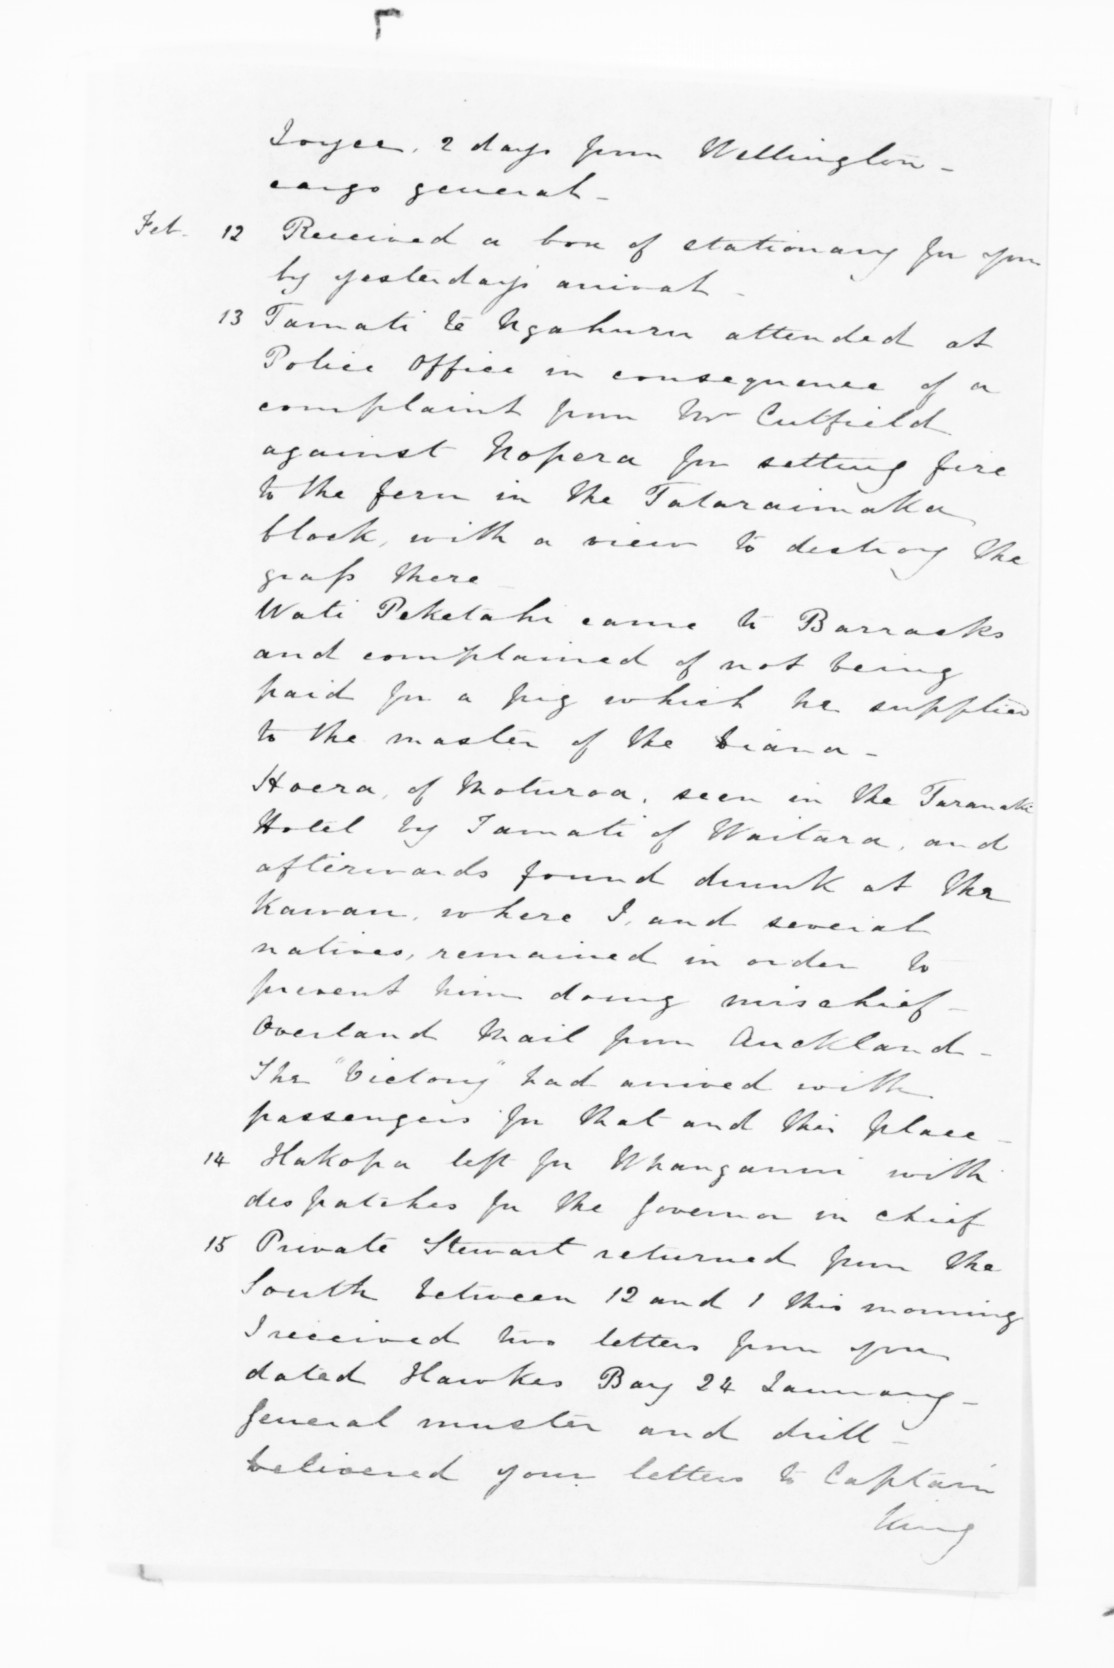 Joyce, 2 days from Wellington -
cargo general -
Feb. 12 Received a box of stationary for you
by yesterday's arrival -
13 Tamati te Ngahuru attended at
Police Office in consequence of a
complaint from Mr Cutfield
against Nopera for setting fire
to the fern in the Tataraimaka
block, with a view to destroy the
grass there -
Wati Peketahi came to Barracks
and complained of not being
paid for a pig which he supplied
to the master of the Diana -
Hoera, of Moturoa, seen in the Taranaki
Hotel by Tamati of Waitara, and
afterwards found drunk at the
Kawau, where I, and several
natives, remained in order to
prevent him doing mischief -
Overland Mail from Auckland -
The "Victory" had arrived with
passengers for that and this place -
14 Hakopa left for Whanganui with
despatches for the Governor in chief
15 Private Stewart returned from the
South between 12 and 1 this morning
I received two letters from you
dated Hawkes Bay 24 January -
General muster and drill -
Delivered your letters to Captain
King